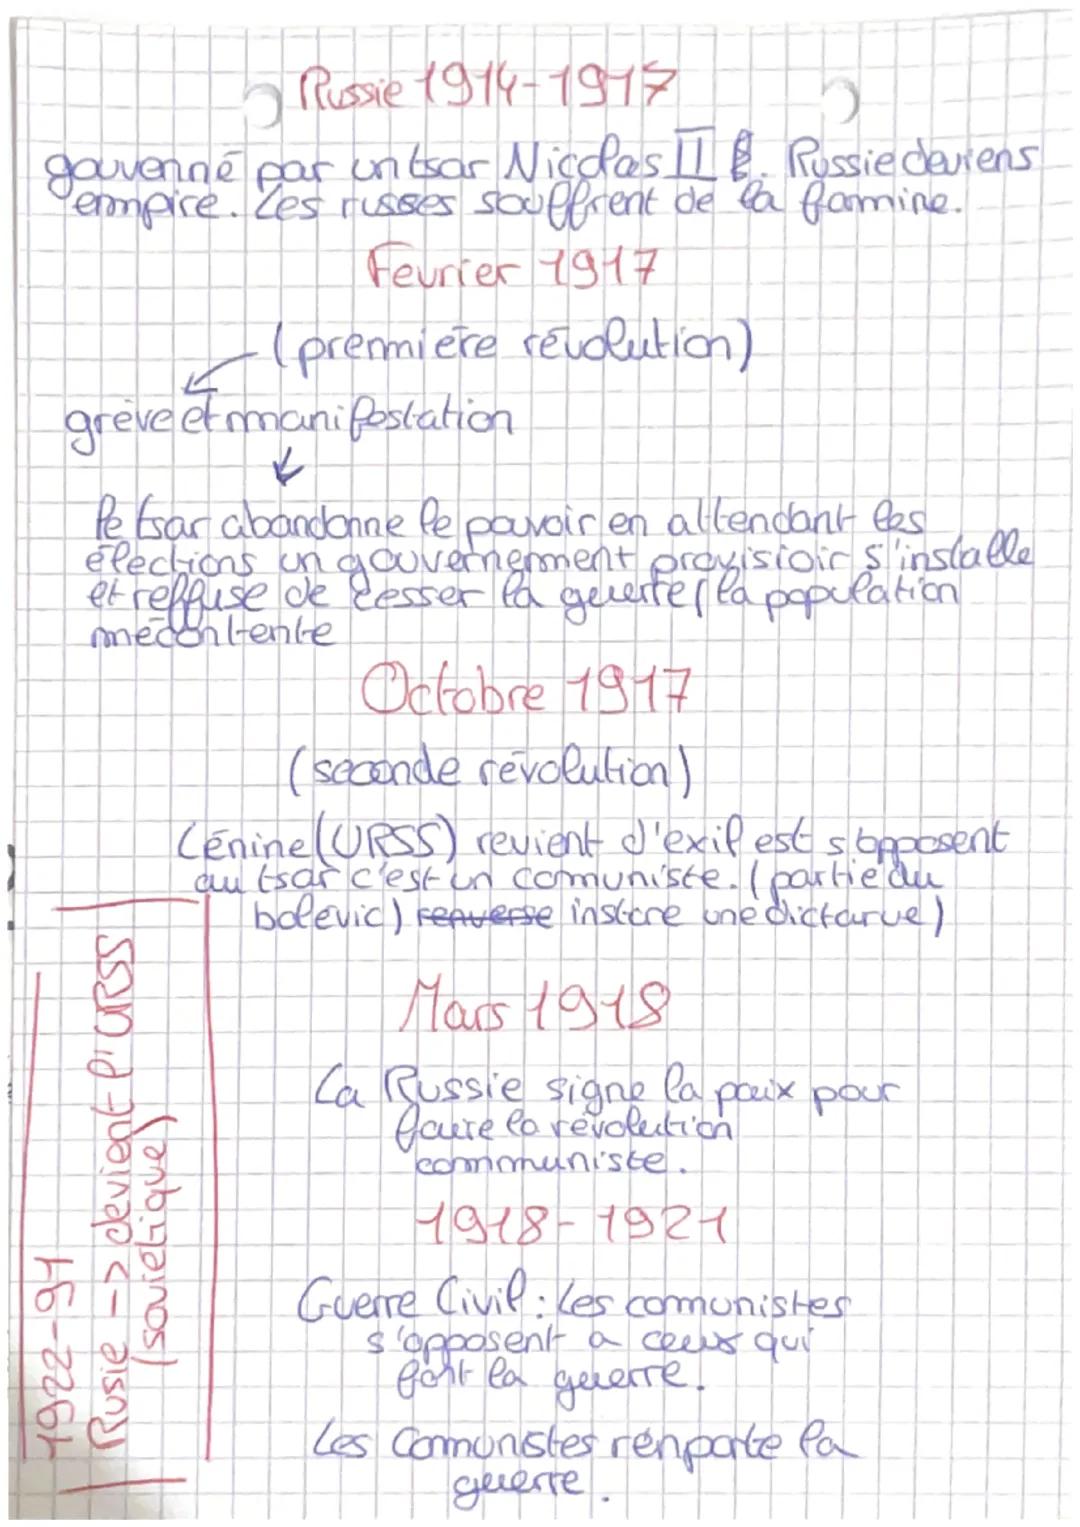 Russie 1914-1917
gouvenné par un tsar Nicolas II. Russie deviens
empire. Les russes souffrent de la famine.
Fevrier 1917
(premmière révolution)
grève et manifestation
le tsar abandonne le pouvoir en attendant les
élections un gouvernement provisioir s'installe
et reffuse de cesser la geuerre (la population
mécontente
Octobre 1917
(seconde révolution)
Lénine (URSS) revient d'exil est s'opposent
au tsar c'est un comuniste. (partie du
bolevic) renverse instore une dictarue)
Mars 1918
La Russie signe la paix pour
faire la révolution
communiste.
1918-1921
Guerre Civil : Les comunistes
s'opposent a ceux qui
font la geuerre.
Les Comunistes renporte la
geuerre.
1922-91
Rusie -> devient l'URSS
(soviétique)